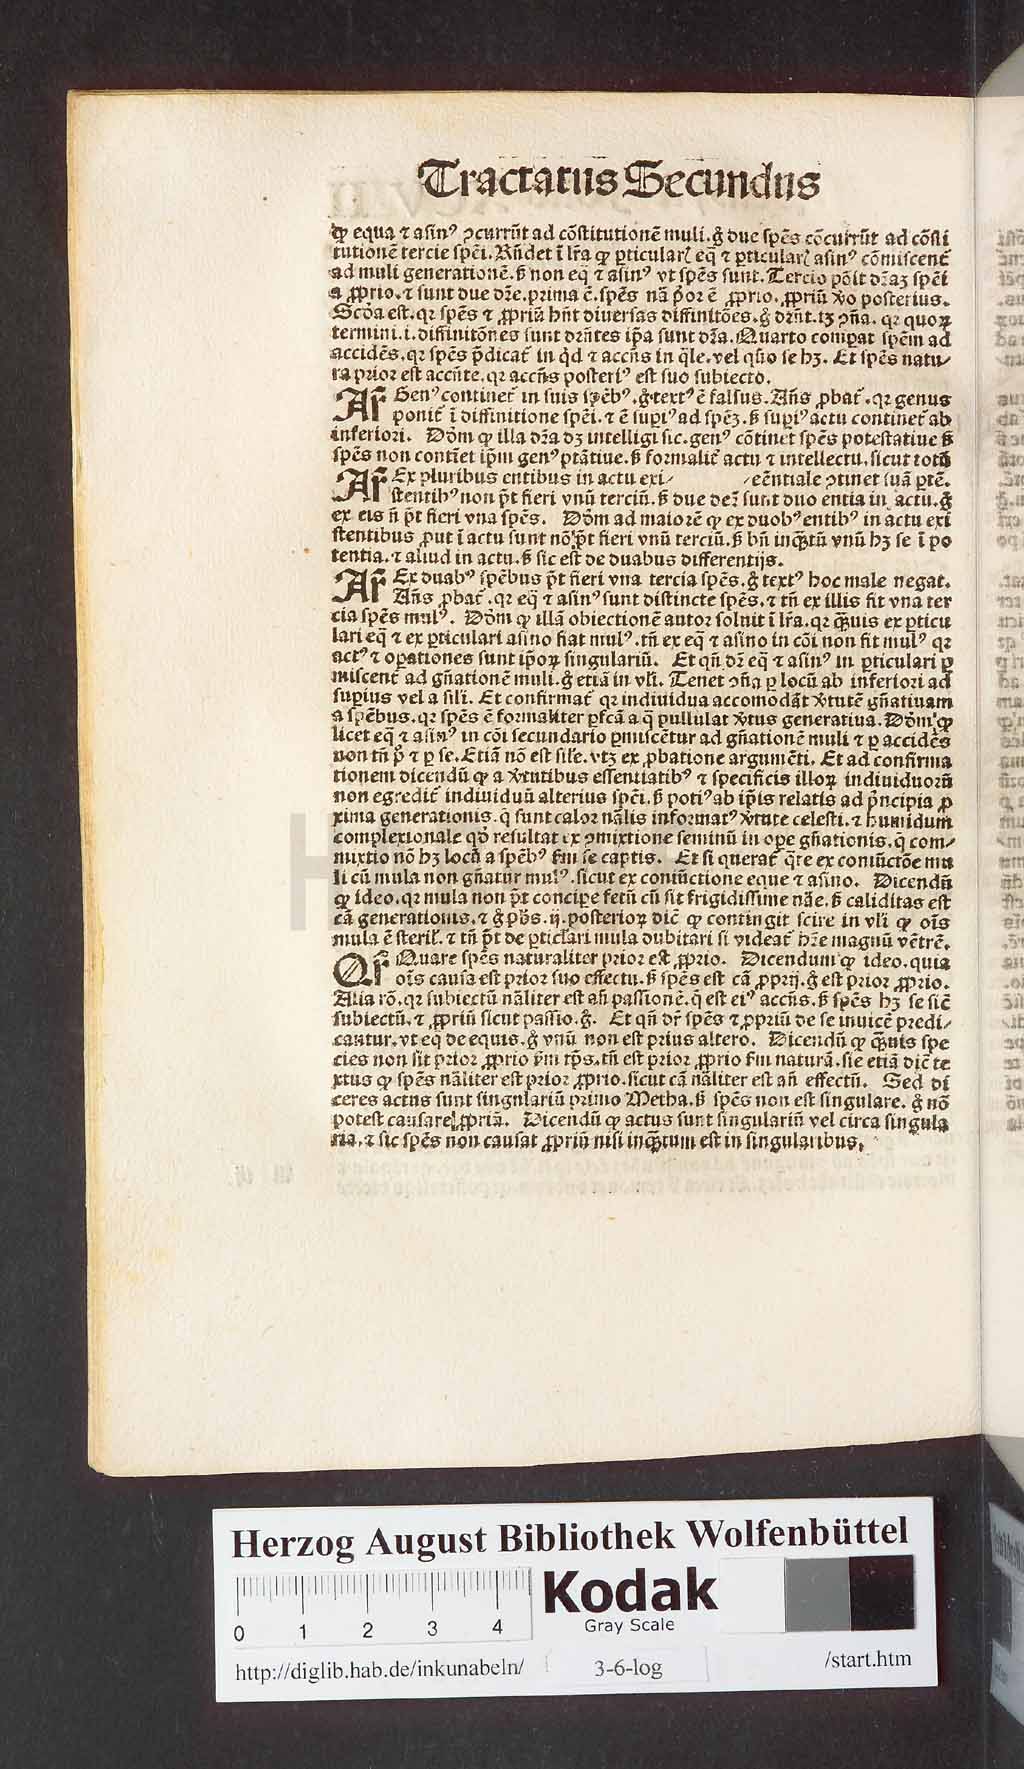 Tractatus Secundus
ꝙ equa ⁊ asinꝰ ↄcurrūt ad cōstitutionē muli. gͦ due spēs cōcurrūt ad cōsti
tutionē tercie spēi. Rn̄det ī lr̄a ꝙ ꝑticulari eq̄ ⁊ ꝑticulari asinꝰ cōmiscent̄
ad muli generationē. ẞ non eq̄ ⁊ asinꝰ vt spēs sunt. Tercio pōit dr̄aꝫ spēi
a ꝓprio. ⁊ sunt due dr̄e. prima ē. spēs nā p̄or ē ꝓprio. ꝓpriū v̄o posterius.
Scd̄a est. qꝛ spēs ⁊ ꝓpriū hn̄t diuersas diffinitōes. gͦ drn̄t. tꝫ ↄn̄a. qꝛ quoꝝ
termini .i. diffinitōnes sunt drn̄tes ip̄a sunt dr̄a. Quarto comꝑat spēm ad
accidēs. qꝛ spēs p̄dicat̄ in q̇d ⁊ accn̄s in q̄le. vel qūo se hꝫ. Et spēs natu⸗
ra prior est accn̄te. qꝛ accn̄s posteriꝰ est suo subiecto.
Ar̄ Genꝰ continet̄ in suis spēbꝰ. gͦ textꝰ ē falsus. An̄s ꝓbat̄. qꝛ genus
ponit̄ ī diffinitione spēi. ⁊ ē suꝑiꝰ ad spēꝫ. ẞ suꝑiꝰ actu continet̄ ab
inferiori. Dōm ꝙ illa dr̄a dꝫ intelligi sic. genꝰ cōtinet spēs potestatiue ẞ
spēs non contīet ip̄m genꝰ ptātiue. ẞ formalit̄ actu ⁊ intellectu. sicut totū
Ar̄ Ex pluribus entibus in actu exi⸗ ⸗eēntiale ↄtinet suā ꝑtē.
stentibꝰ non p̄t fieri vnū terciū. ẞ due dr̄e sunt duo entia in actu. gͦ
ex eis n̄ p̄t fieri vna spēs. Dōm ad maiorē ꝙ ex duobꝰ entibꝰ in actu exi
stentibus ꝓut ī actu sunt nō p̄t fieri vnū terciū. ẞ bn̄ inq̄ꝫtū vnū hꝫ se ī po
tentia. ⁊ aliud in actu. ẞ sic est de duabus differentijs.
Ar̄ Ex duabꝰ spēbus p̄t fieri vna tercia spēs. gͦ textꝰ hoc male negat.
An̄s ꝓbat̄. qꝛ eq̄ ⁊ asinꝰ sunt distincte spēs. ⁊ tn̄ ex illis fit vna ter
cia spēs mulꝰ. Dōm ꝙ illā obiectionē autor soluit ī lr̄a. qꝛ q̄ꝫuis ex ꝑticu
lari eq̄ ⁊ ex ꝑticulari asino fiat mulꝰ. tn̄ ex eq̄ ⁊ asino in cōi non fit mulꝰ qꝛ
actꝰ ⁊ oꝑationes sunt ip̄oꝝ singulariū. Et qn̄ dr̄ eq̄ ⁊ asinꝰ in ꝑticulari ꝑ
miscent̄ ad gn̄ationē muli. gͦ etiā in vl̄i. Tenet ↄn̄a ꝑ locū ab inferiori ad
suꝑius vel a sil̄i. Et confirmat̄ qꝛ indiuidua accomodāt v̄tutē gn̄atiuam
a spēbus. qꝛ spēs ē formaliter ꝑfcā a q̄ pullulat v̄tus generatiua. Dōm ꝙ
licet eq̄ ⁊ asinꝰ in cōi secundario ꝑmiscētur ad gn̄ationē muli ⁊ ꝑ accidēs
non tn̄ pͦ ⁊ ꝑ se. Etiā nō est sil̄e. vtꝫ ex ꝓbatione argumēti. Et ad confirma
tionem dicendū ꝙ a v̄tutibus essentialibꝰ ⁊ specificis illoꝝ indiuiduorū
non egredit̄ indiuiduū alterius spēi. ẞ potiꝰ ab ip̄is relatis ad p̄ncipia ꝓ
xima generationis. q̄ sunt calor nālis informatꝰ v̄tute celesti. ⁊ humidum
complexionale qd̄ resultat ex ↄmixtione seminū in oꝑe gn̄ationis. q̄ com⸗
mixtio nō hꝫ locū a spēbꝰ fm̄ se captis. Et si querat̄ q̄re ex coniūctōe mu
li cū mula non gn̄atur mulꝰ. sicut ex coniūctione eque ⁊ asino. Dicendū
ꝙ ideo. qꝛ mula non p̄t conciꝑe fetū cū sit frigidissime nāe. ẞ caliditas est
cā generationis. ⁊ gͦ ph̄s .ij. posterioꝝ dic̄ ꝙ contingit scire in vl̄i ꝙ oīs
mula ē steril̄. ⁊ tn̄ p̄t de ꝑticl̄ari mula dubitari si videat̄ hr̄e magnū vētrē.
Qr̄ Quare spēs naturaliter prior est ꝓprio. Dicendum ꝙ ideo. quia
oīs causa est prior suo effectu. ẞ spēs est cā ꝓprij. gͦ est prior ꝓprio.
Alia rō. qꝛ subiectū nāliter est an̄ passionē. q̄ est eiꝰ accn̄s. ẞ spēs hꝫ se sic̄
subiectū. ⁊ ꝓpriū sicut passio. gͦ. Et qn̄ dr̄ spēs ⁊ ꝓpriū de se inuicē predi⸗
cantur. vt eq̄ de equis. gͦ vnū non est prius altero. Dicendū ꝙ q̄ꝫuis spe
cies non sit prior ꝓprio fm̄ tp̄s. tn̄ est prior ꝓprio fm̄ naturā. sic etiā dic̄ te
xtus ꝙ spēs nāliter est prior ꝓprio. sicut cā nāliter est an̄ effectū. Sed di
ceres actus sunt singulariū primo Metha. ẞ spēs non est singulare. gͦ nō
potest causare ꝓpriū. Dicendū ꝙ actus sunt singulariū vel circa singula
ria. ⁊ sic spēs non causat ꝓpriū nisi inq̄ꝫtum est in singularibus.
Herzog August Bibliothek Wolfenbüttel
0 1 2 3 4
Kodak
Gray Scale
http://diglib.hab.de/inkunabeln/
3-6-log
/start.htm